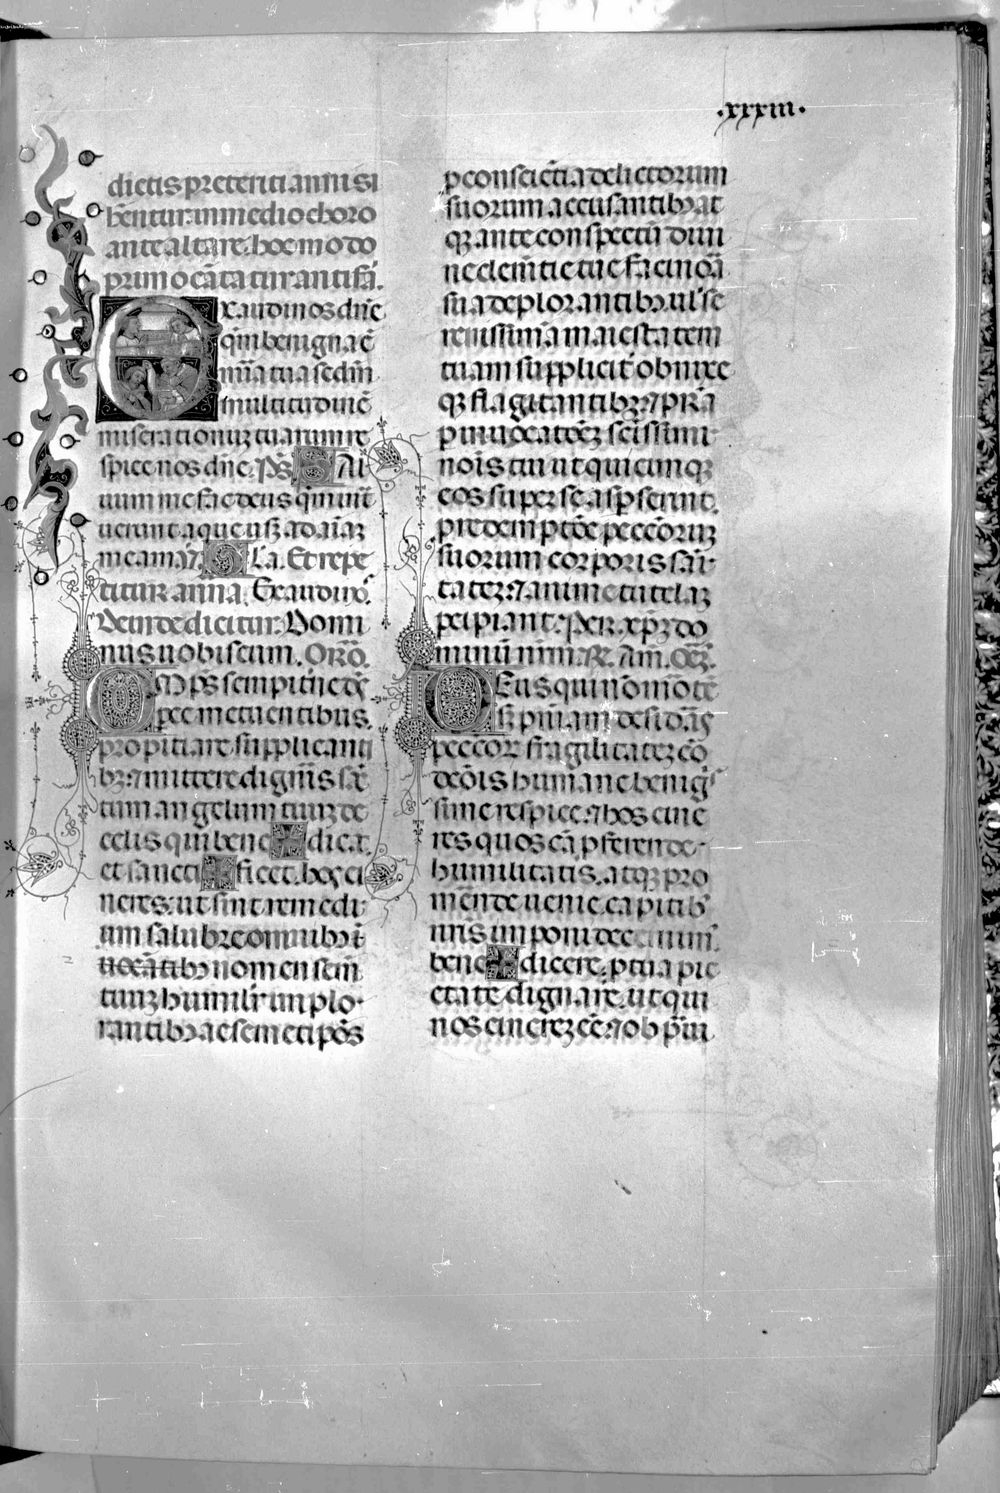 .xxxiii.
dictis preteriti anni si
bentur. in medio choro
ante altare. hoc modo
primo cātatur antifā.
Exaudi nos dn̄e
qm̄ benigna ē
mīa tua scdm̄
multitudinē
miserationuʒ tuarum re
spice nos dn̄e. ps̄. Sal
uum me fac deus qm̄ intrāt
uerunt aque usqʒ ad aīaʒ
meam. Gl̄a. Et repe
titur anna. Exaudi nos.
Deinde dicitur. Domi
nus uobiscum. Orō.
Omps̄ sempitn̄e ds̄
parce metuentibus.
propitiare supplicanti
bʒ. ⁊ mittere digneris sc̄
tum angelum tuuʒ de
celis qui bene✠dicat.
et sancti✠ficet. hos ci
neres. ut sint remedi
um salubre omnibʒ
uocātibʒ nomen scm̄
tuuʒ humilit̄ implo
rantibʒ ac semetipōs
p conscientia delictorum
suorum accusantibʒ at
qʒ ante conspectū diui
ne clemtie tue facinoā
sua deplorantibʒ. ul̓ se
renissimā maiestatem
tuam supplicit̓ obnixe
qʒ flagitantibʒ. ⁊ pr̄a
p inuocatōeʒ scissimi
nois tui ut quicumqʒ
eos super se aspserint.
p redemptōe peccorūʒ
suorum corporis sāi
tateʒ. ⁊ anime tutelaʒ
pcipiant. Per xp̄ʒ do
minū nrm̄. R. Am̄. Orō.
Deus qui nō morte
sʒ pn̄iam desidās
peccōr fragilitateʒ cō
deōis humane benigs
sime respice. ⁊ hos cine
res quos cā pferende
humilitatis. atqʒ pro
merēde uenie capitibʒ
nris imponi decernim̄.
bene✠dicere. p tua pie
tate dignare. ut qui
nos cinereʒ eē. ⁊ ob pͣui